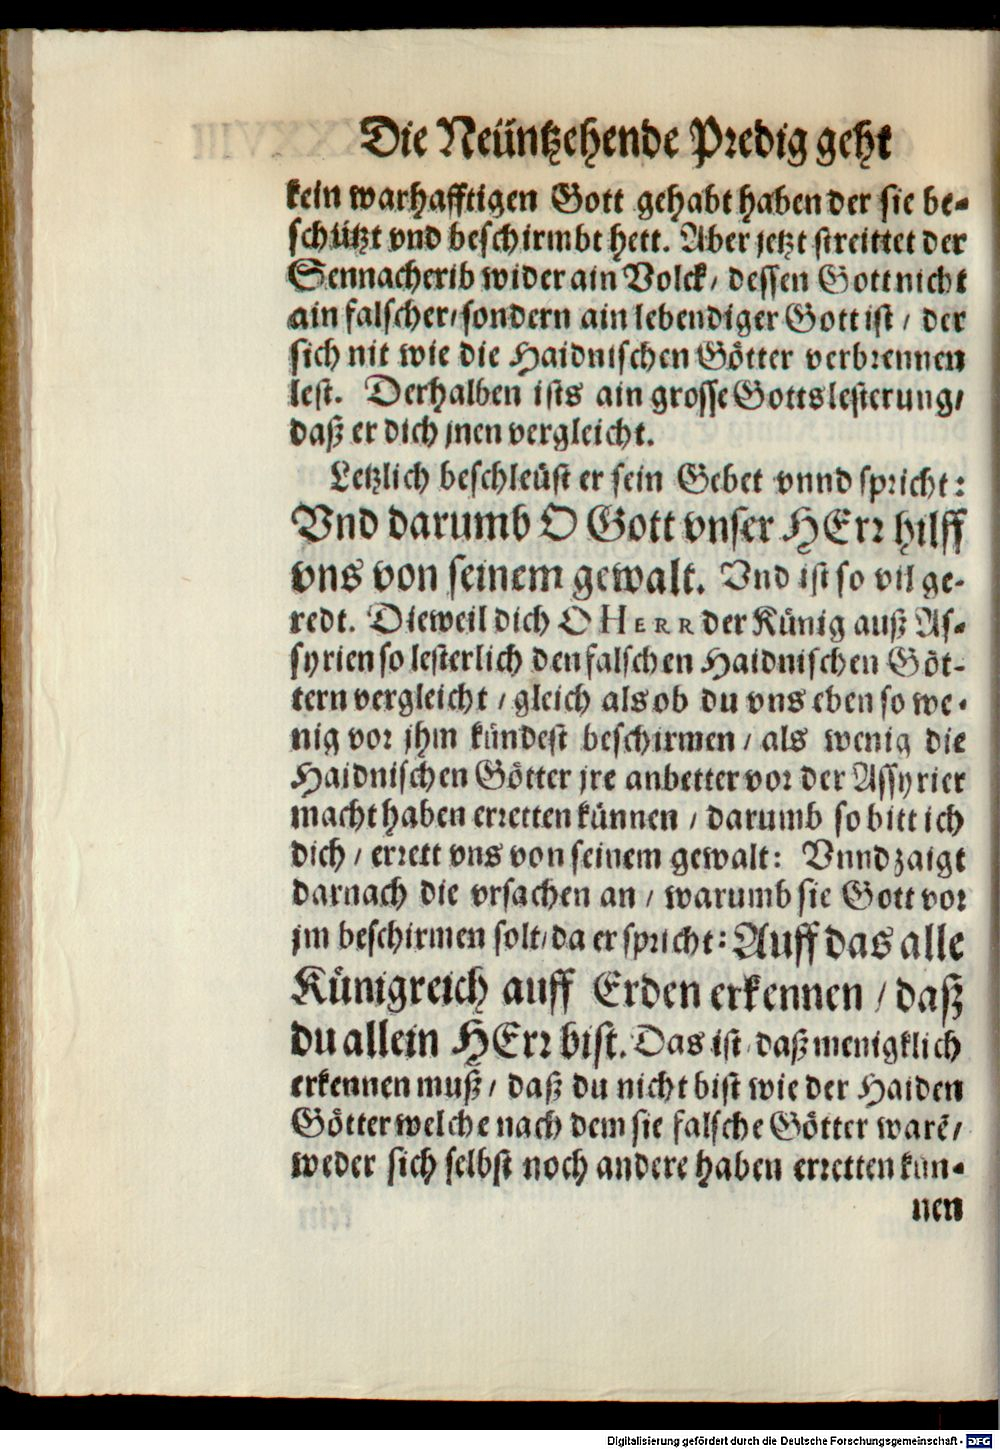 Die Neüntzehende Predig geht
kein warhafftigen Gott gehabt haben der sie be-
schützt vnd beschirmbt hett. Aber jetzt streittet der
Sennacherib wider ain Volck/ dessen Gott nicht
ain falscher/ sondern ain lebendiger Gott ist / der
sich nit wie die Haidnischen Götter verbrennen
lest. Derhalben ists ain grosse Gottslesterung/
daß er dich jnen vergleicht.
Letzlich beschleüst er sein Gebet vnnd spricht:
Vnd darumb O Gott vnser HErr hilff
vns von seinem gewalt. Vnd ist so vil ge-
redt. Dieweil dich O HERR der Künig auß As-
syrien so lesterlich den falschen Haidnischen Göt-
tern vergleicht / gleich als ob du vns eben so we-
nig vor jhm kündest beschirmen / als wenig die
Haidnischen Götter jre anbetter vor der Assyrier
macht haben erretten künnen / darumb so bitt ich
dich / errett vns von seinem gewalt: Vnnd zaigt
darnach die vrsachen an / warumb sie Gott vor
jm beschirmen solt/ da er spricht: Auff das alle
Künigreich auff Erden erkennen / daß
du allein HErr bist. Das ist/ daß menigklich
erkennen muß / daß du nicht bist wie der Haiden
Götter welche nach dem sie falsche Götter warē/
weder sich selbst noch andere haben erretten kün-
nen
Digitalisierung gefördert durch die Deutsche Forschungsgemeinschaft - DFG